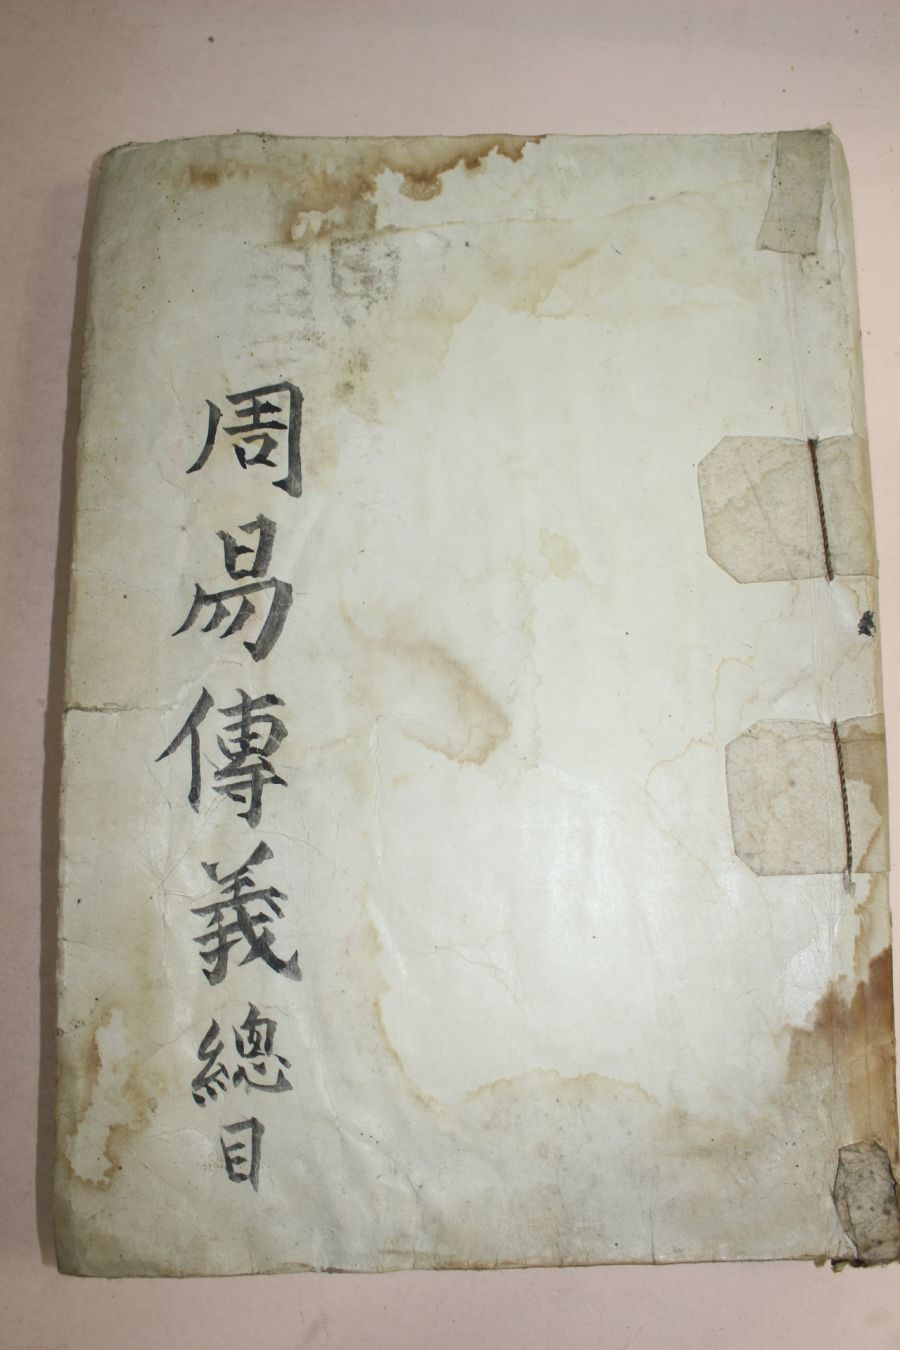 周易傳義總目